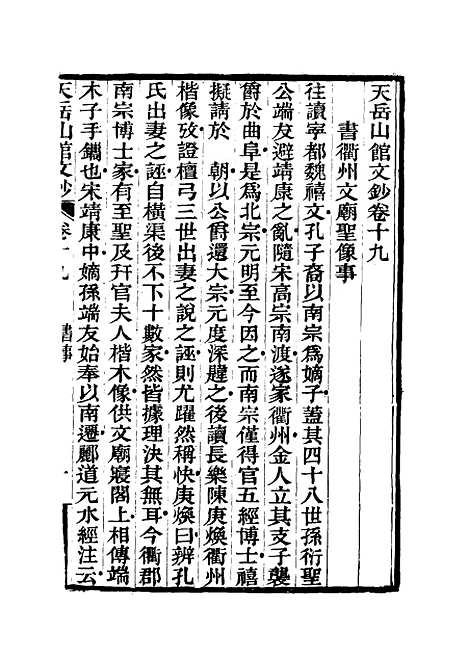 天岳山館文鈔卷十九
書衢州文廟聖像事
往讀寧都魏禧文孔子裔以南宗爲嫡子蓋其四十八世孫衍聖
公端友避靖康之亂隨宋高宗南渡遂家衢州金人立其支子襲
爵於曲阜是爲北宗元明至今因之而南宗僅得官五經博士禧
擬請於 朝以公爵還大宗元度深韙之後讀長樂陳庚煥衢州
楷像攷證檀弓三世出妻之說之誣則尤躍然稱快庚煥曰辨孔
氏出妻之誣自橫渠後不下十數家然皆據理決其無耳今衢郡
南宗博士家有至聖及幵官夫人楷木像供文廟寢閣上相傳端
木子手鐫也宋靖康中嫡孫端友始奉以南遷酈道元水經注云
天岳山館文鈔 卷十九 書事 一